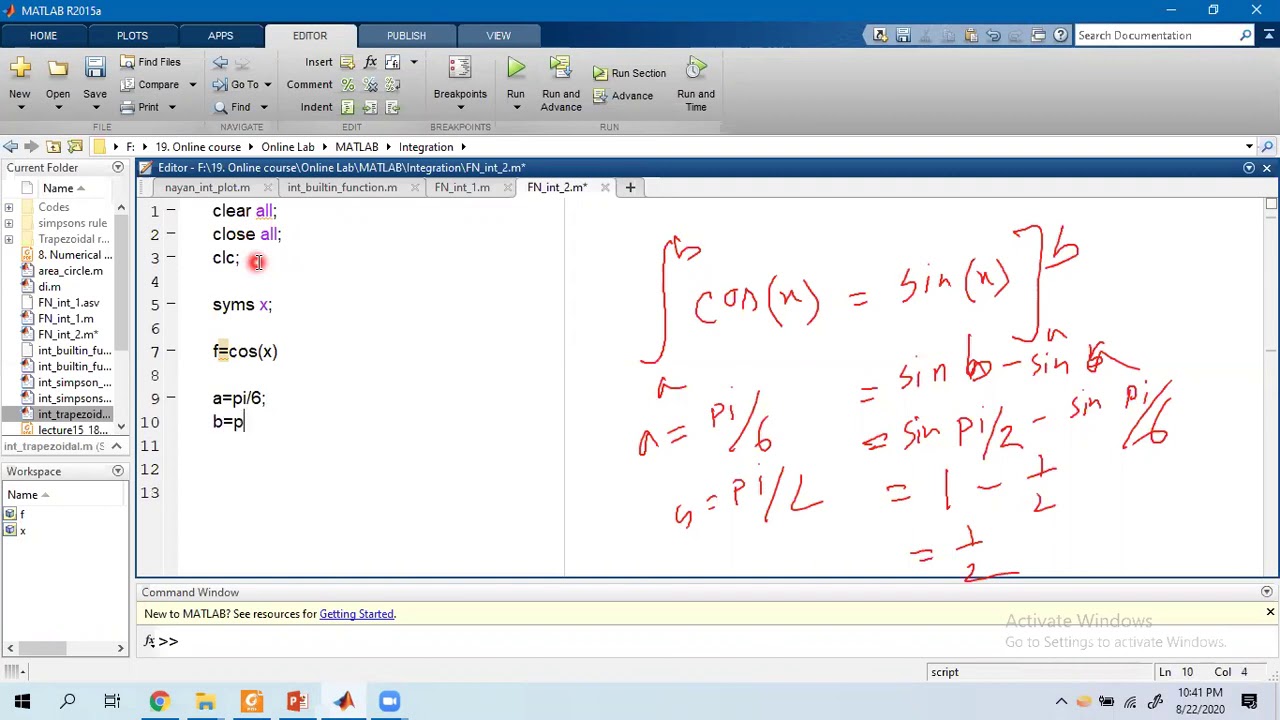 MATLAB R2015a
HOME PLOTS APPS EDITOR PUBLISH VIEW Search Documentation
New Open Save Find Files Compare Print
Go To Find
Insert Comment Indent
Breakpoints Run Run and Advance Run Section Advance Run and Time
FILE NAVIGATE EDIT BREAKPOINTS RUN
F: 19. Online course Online Lab MATLAB Integration
Current Folder
Name
Codes
simpsons rule
Trapezoidal r...
8. Numerical
area_circle.m
di.m
FN_int_1.asv
FN_int_1.m
FN_int_2.m*
int_builtin_fu...
int_builtin_fu...
int_simpson_...
int_simpsons...
int_trapezoid...
lecture15_18...
int_trapezoidal.m (S...
Workspace
Name
f
x
Editor - F:\19. Online course\Online Lab\MATLAB\Integration\FN_int_2.m*
nayan_int_plot.m int_builtin_function.m FN_int_1.m FN_int_2.m*
1 clear all;
2 close all;
3 clc;
4
5 syms x;
6
7 f=cos(x)
8
9 a=pi/6;
10 b=p
11
12
13
∫ₐᵇ cos(x) = sin(x)]ₐᵇ
= sin b - sin a
a = pi/6
= sin pi/2 - sin pi/6
b = pi/2
= 1 - 1/2
= 1/2
Command Window
New to MATLAB? See resources for Getting Started.
fx >>
Activate Windows
Go to Settings to activate Windows.
script Ln 10 Col 4
10:41 PM
8/22/2020